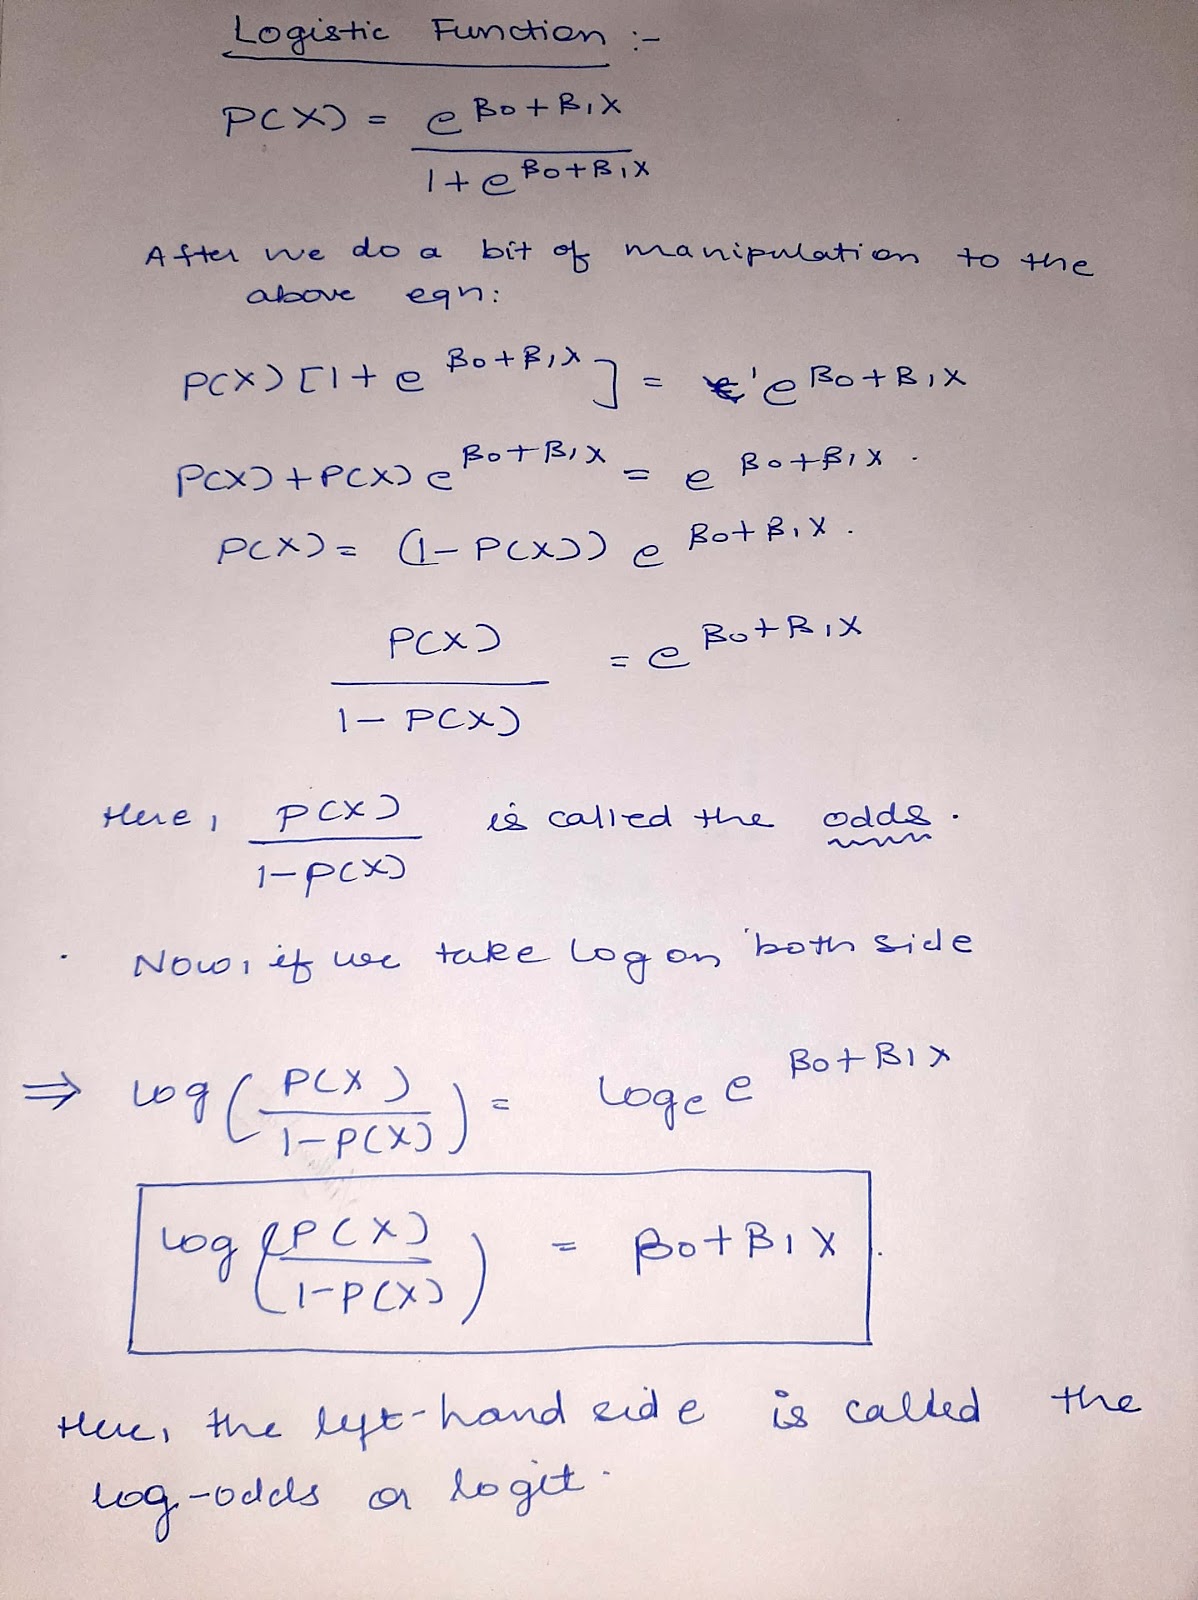 Logistic Function :-
P(X) = e^{β0+β1X} / 1+e^{β0+β1X}
After we do a bit of manipulation to the
above eqn:
P(X) [1+e^{β0+β1X}] = e^{β0+β1X}
P(X)+P(X)e^{β0+β1X} = e^{β0+β1X}.
P(X) = (1-P(X)) e^{β0+β1X}.
P(X) / 1-P(X) = e^{β0+β1X}
Here, P(X) / 1-P(X) is called the odds.
Now, if we take log on both side
⇒ log(P(X) / 1-P(X)) = log_e e^{β0+β1X}
log(P(X) / 1-P(X)) = β0+β1X.
Here, the left-hand side is called the
log-odds or logit.